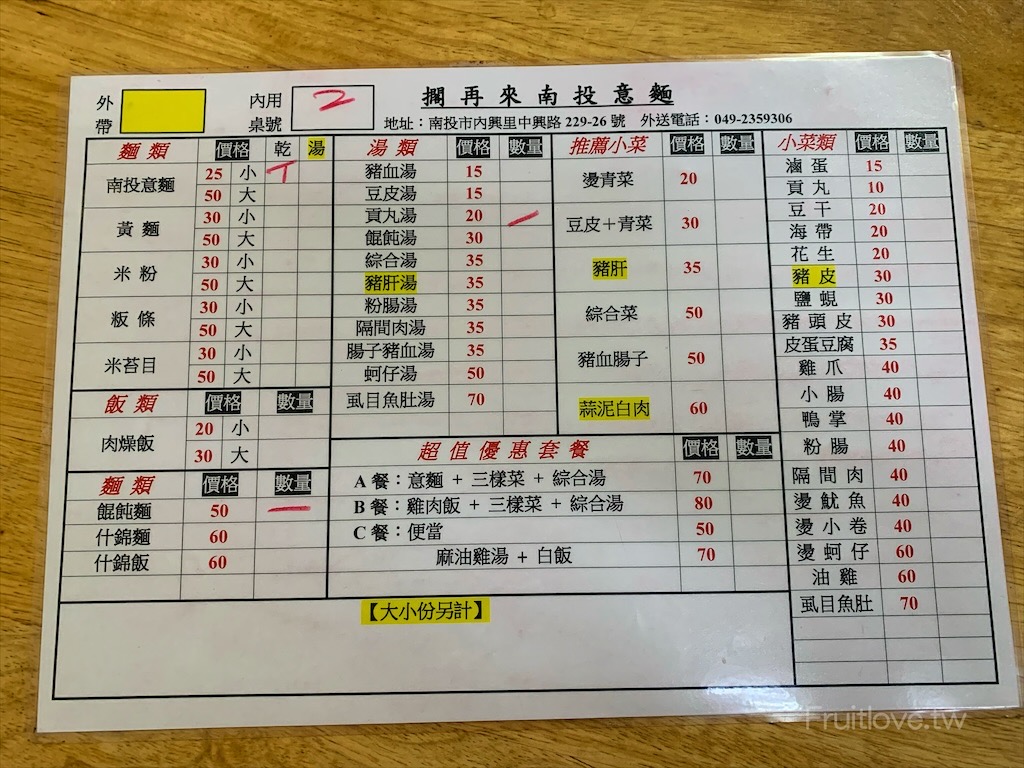 擱再來南投意麵
外帶
內用桌號 2
地址：南投市內興里中興路 229-26 號 外送電話：049-2359306
麵類 價格 乾 湯
南投意麵 25 小 T
50 大
黃麵 30 小
50 大
米粉 30 小
50 大
粄條 30 小
50 大
米苔目 30 小
50 大
飯類 價格 數量
肉燥飯 20 小
30 大
麵類 價格 數量
餛飩麵 50 一
什錦麵 60
什錦飯 60
湯類 價格 數量
豬血湯 15
豆皮湯 15
貢丸湯 20 一
餛飩湯 30
綜合湯 35
豬肝湯 35
粉腸湯 35
隔間肉湯 35
腸子豬血湯 35
蚵仔湯 50
虱目魚肚湯 70
推薦小菜 價格 數量
燙青菜 20
豆皮＋青菜 30
豬肝 35
綜合菜 50
豬血腸子 50
蒜泥白肉 60
超值優惠套餐 價格 數量
A 餐：意麵 + 三樣菜 + 綜合湯 70
B 餐：雞肉飯 + 三樣菜 + 綜合湯 80
C 餐：便當 50
麻油雞湯 + 白飯 70
小菜類 價格 數量
滷蛋 15
貢丸 10
豆干 20
海帶 20
花生 20
豬皮 30
鹽蜆 30
豬頭皮 30
皮蛋豆腐 35
雞爪 40
小腸 40
鴨掌 40
粉腸 40
隔間肉 40
燙魷魚 40
燙小卷 40
燙蚵仔 60
油雞 60
虱目魚肚 70
【大小份另計】
Fruitlove.tw